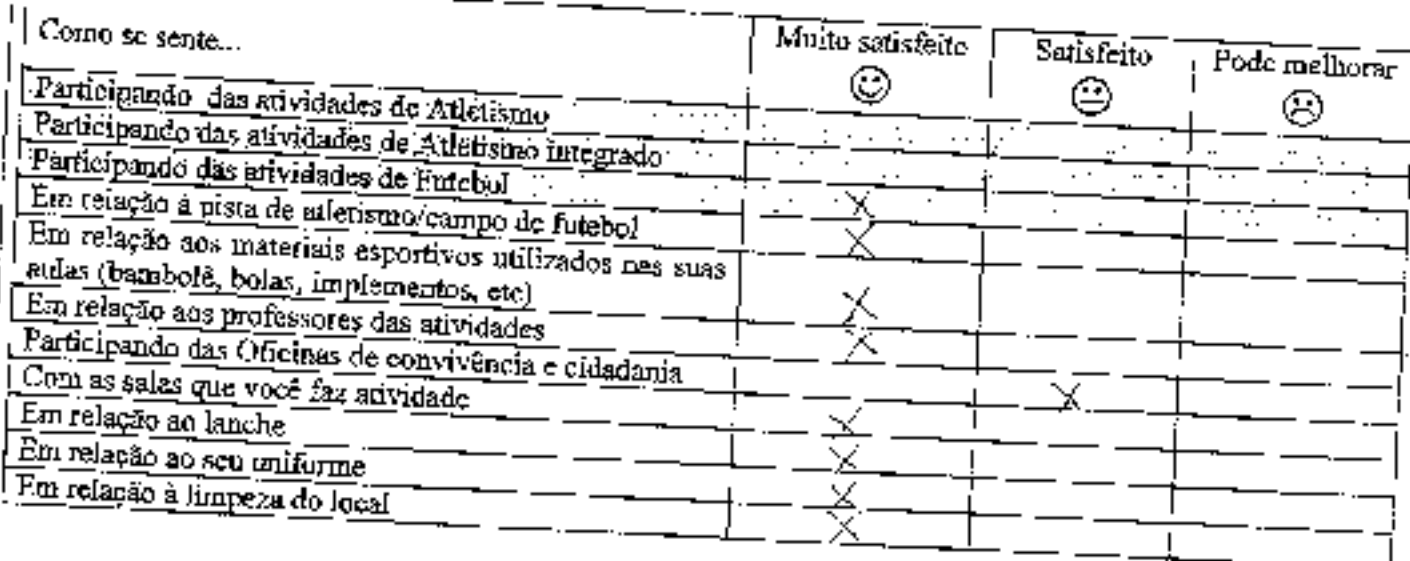 Como se sente...
Muito satisfeito
Satisfeito
Pode melhorar
Participando das atividades de Atletismo
Participando das atividades de Atletismo integrado
Participando das atividades de Futebol
X
Em relação à pista de atletismo/campo de futebol
X
Em relação aos materiais esportivos utilizados nas suas
aulas (bambolê, bolas, implementos, etc)
X
Em relação aos professores das atividades
X
Participando das Oficinas de convivência e cidadania
X
Com as salas que você faz atividade
X
Em relação ao lanche
X
Em relação ao seu uniforme
X
Em relação à limpeza do local
X